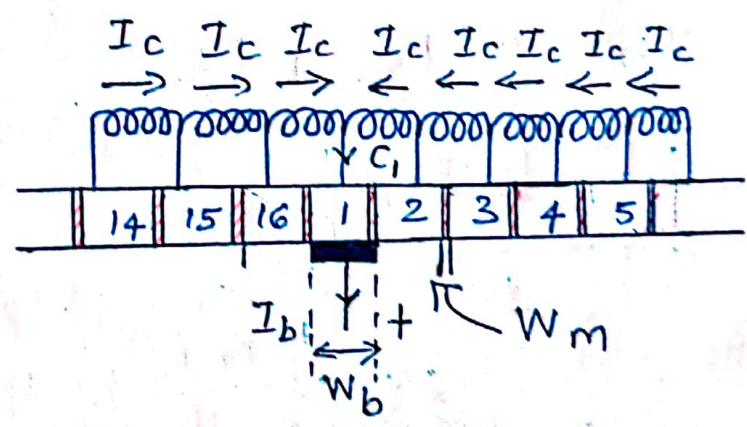 Ic Ic Ic Ic Ic Ic Ic Ic
C1
14 15 16 1 2 3 4 5
Ib + Wm
Wb